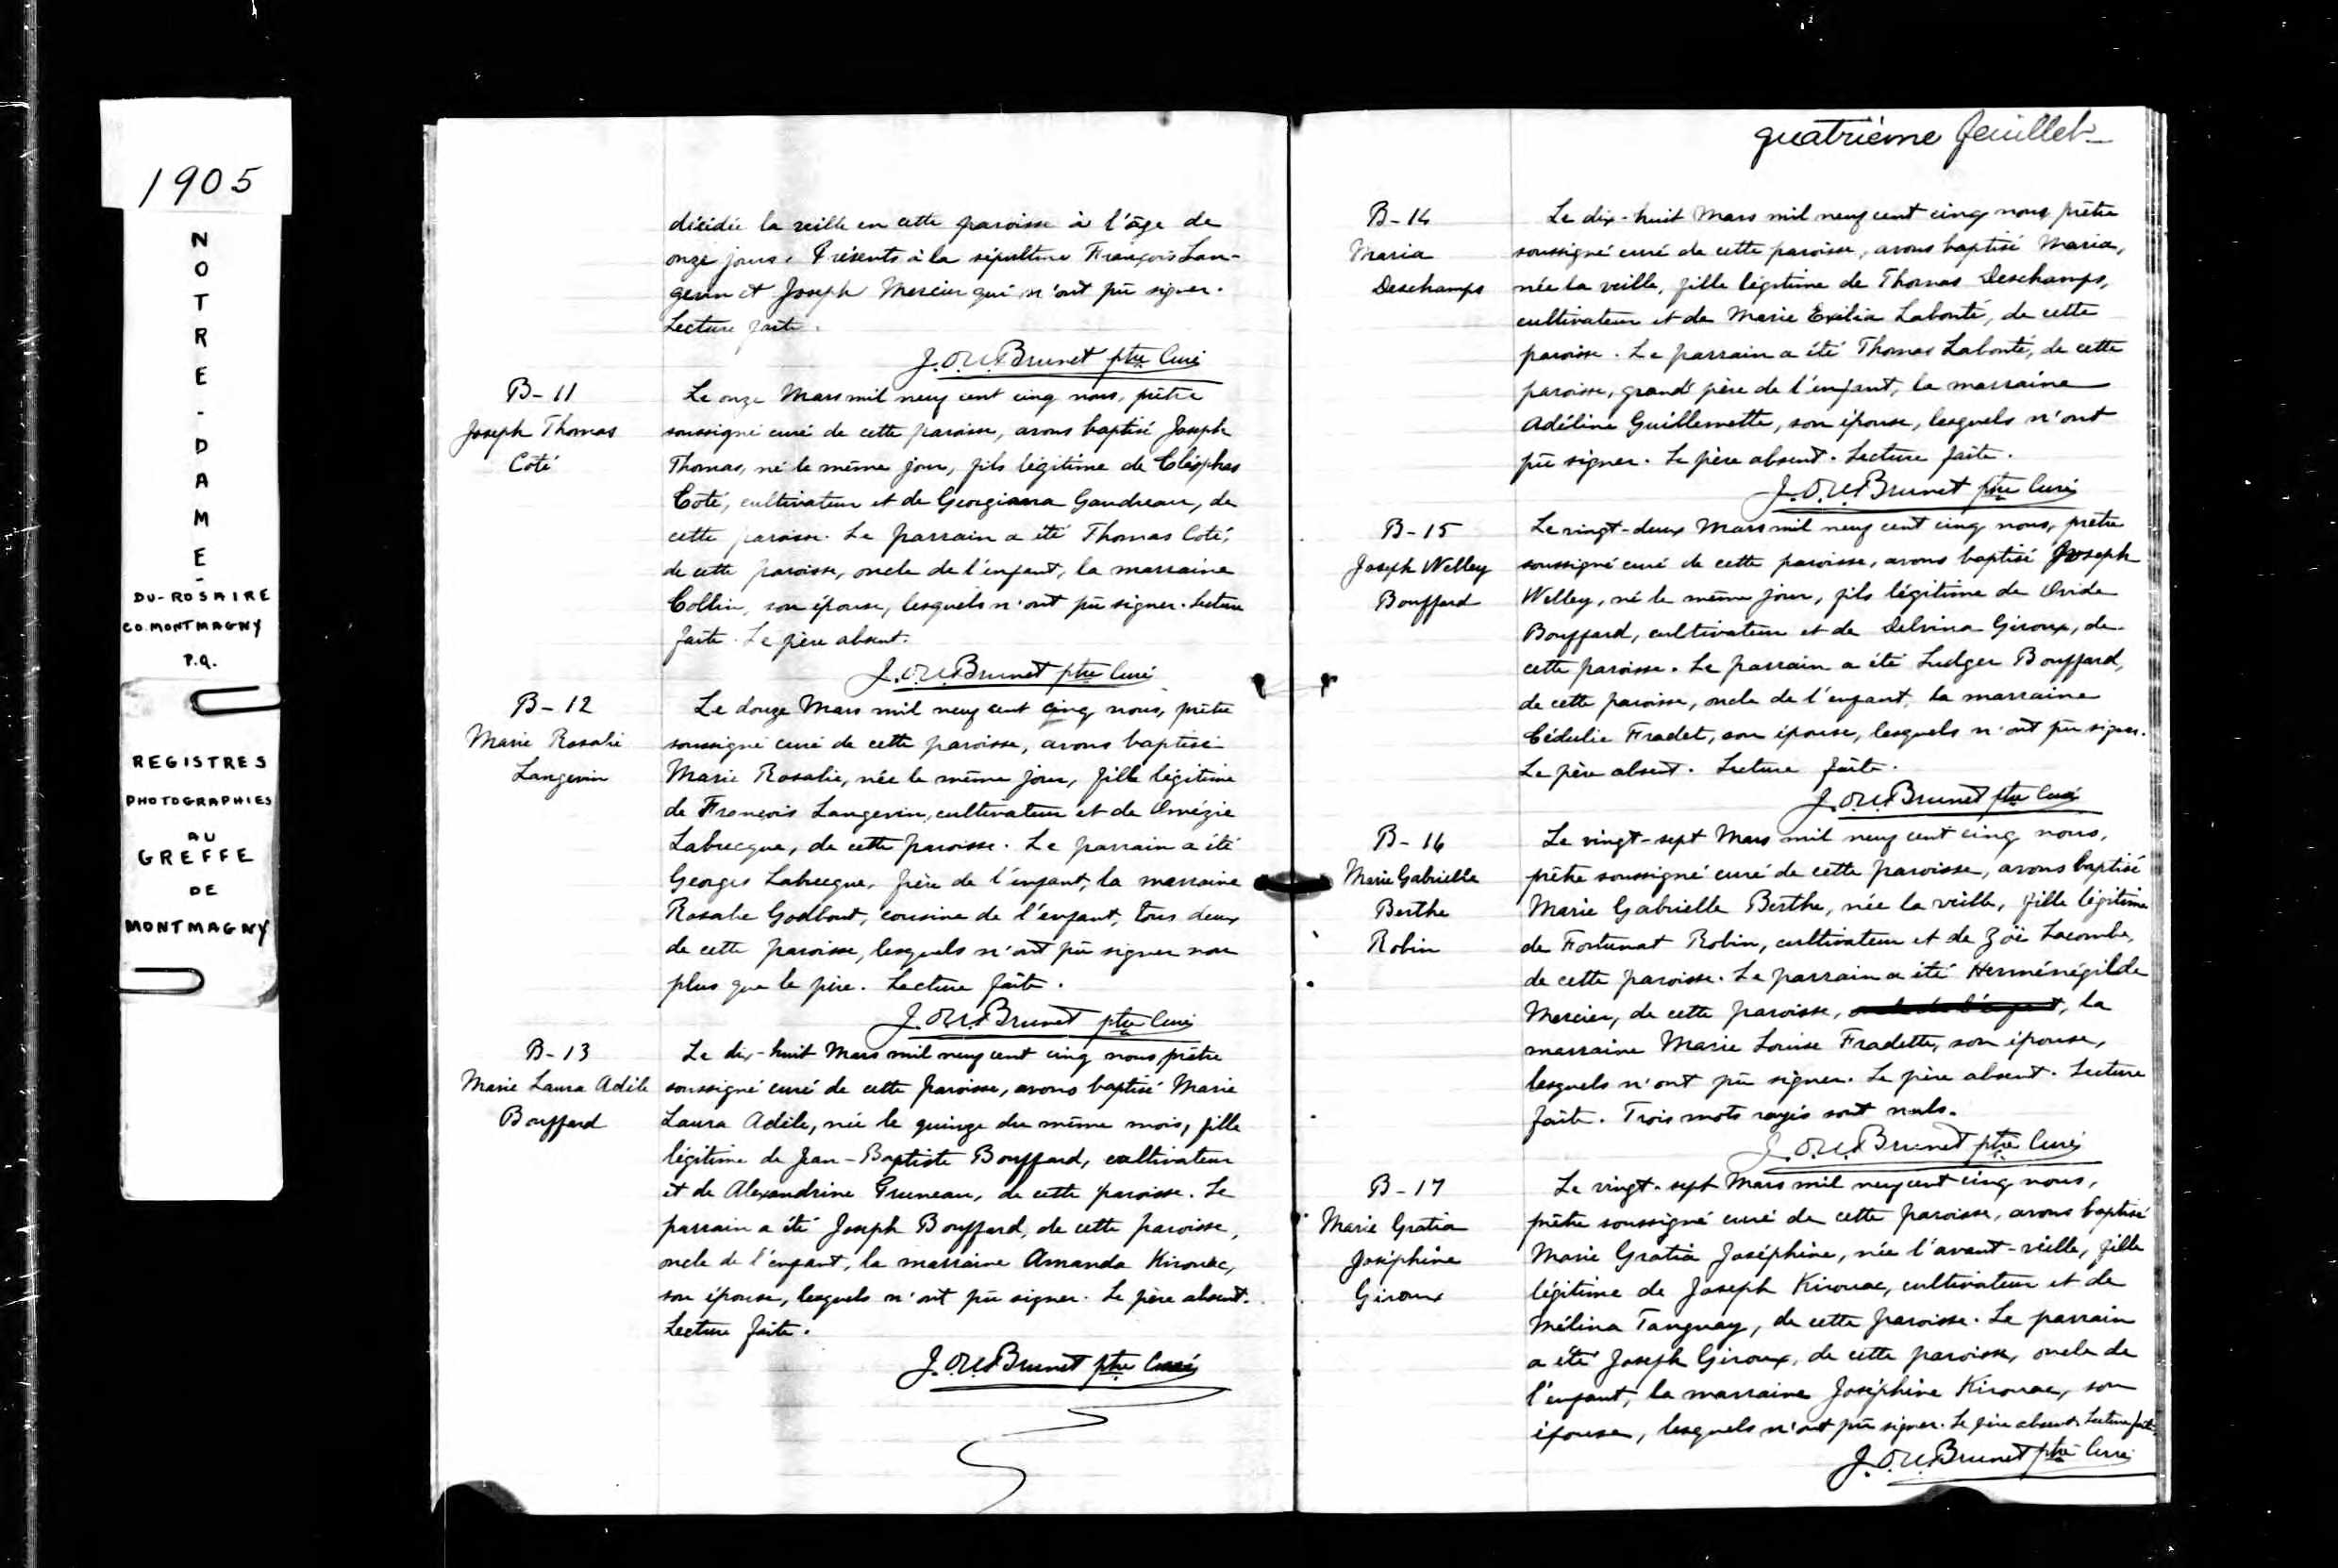 1905
NOTRE-DAME-
DU-ROSAIRE
CO. MONTMAGNY
P.Q.
REGISTRES
PHOTOGRAPHIES
AU
GREFFE
DE
MONTMAGNY
décédée la veille en cette paroisse à l'âge de
onze jours. Présents à la sépulture François Lan-
gevin et Joseph Mercier qui n'ont pû signer.
Lecture faite.
J.O.U. Brunet ptre Curé
B-11
Joseph Thomas
Coté
Le onze Mars mil neuf cent cinq nous, prêtre
soussigné curé de cette paroisse, avons baptisé Joseph
Thomas, né le même jour, fils légitime de Cléophas
Coté, cultivateur et de Georgianna Gaudreau, de
cette paroisse. Le parrain a été Thomas Coté,
de cette paroisse, oncle de l'enfant, la marraine
Collin, son épouse, lesquels n'ont pû signer. Lecture
faite. Le père absent.
J.O.U. Brunet ptre Curé
B-12
Marie Rosalie
Langevin
Le douze Mars mil neuf cent cinq nous, prêtre
soussigné curé de cette paroisse, avons baptisé
Marie Rosalie, née le même jour, fille légitime
de François Langevin, cultivateur et de Omézie
Labrecque, de cette paroisse. Le parrain a été
Georges Labrecque, frère de l'enfant, la marraine
Rosalie Godbout, cousine de l'enfant, tous deux
de cette paroisse, lesquels n'ont pû signer non
plus que le père. Lecture faite.
J.O.U. Brunet ptre Curé
B-13
Marie Laura Adèle
Bouffard
Le dix-huit Mars mil neuf cent cinq nous prêtre
soussigné curé de cette paroisse, avons baptisé Marie
Laura Adèle, née le quinze du même mois, fille
légitime de Jean-Baptiste Bouffard, cultivateur
et de Alexandrine Pruneau, de cette paroisse. Le
parrain a été Joseph Bouffard, de cette paroisse,
oncle de l'enfant, la marraine Amanda Kirouac,
son épouse, lesquels n'ont pû signer. Le père absent.
Lecture faite.
J.O.U. Brunet ptre Curé
quatrième feuillet
B-14
Maria
Deschamps
Le dix-huit Mars mil neuf cent cinq nous prêtre
soussigné curé de cette paroisse, avons baptisé Maria,
née la veille, fille légitime de Thomas Deschamps,
cultivateur et de Marie Exilia Labonté, de cette
paroisse. Le parrain a été Thomas Labonté, de cette
paroisse, grand père de l'enfant, la marraine
Adéline Guillemette, son épouse, lesquels n'ont
pû signer. Le père absent. Lecture faite.
J.O.U. Brunet ptre Curé
B-15
Joseph Welley
Bouffard
Le vingt-deux Mars mil neuf cent cinq nous, prêtre
soussigné curé de cette paroisse, avons baptisé Joseph
Welley, né le même jour, fils légitime de Ovide
Bouffard, cultivateur et de Delvina Giroux, de
cette paroisse. Le parrain a été Ludger Bouffard,
de cette paroisse, oncle de l'enfant, la marraine
Cédulie Fradet, son épouse, lesquels n'ont pû signer.
Le père absent. Lecture faite.
J.O.U. Brunet ptre Curé
B-16
Marie Gabrielle
Berthe
Robin
Le vingt-sept Mars mil neuf cent cinq nous,
prêtre soussigné curé de cette paroisse, avons baptisé
Marie Gabrielle Berthe, née la veille, fille légitime
de Fortunat Robin, cultivateur et de Zoë Lacombe,
de cette paroisse. Le parrain a été Herménégilde
Mercier, de cette paroisse, oncle de l'enfant, la
marraine Marie Louise Fradette, son épouse,
lesquels n'ont pû signer. Le père absent. Lecture
faite. Trois mots rayés sont nuls.
J.O.U. Brunet ptre Curé
B-17
Marie Gratia
Joséphine
Giroux
Le vingt-sept Mars mil neuf cent cinq nous,
prêtre soussigné curé de cette paroisse, avons baptisé
Marie Gratia Joséphine, née l'avant-veille, fille
légitime de Joseph Kirouac, cultivateur et de
Mélina Tanguay, de cette paroisse. Le parrain
a été Joseph Giroux, de cette paroisse, oncle de
l'enfant, la marraine Joséphine Kirouac, son
épouse, lesquels n'ont pû signer. Le père absent. Lecture faite.
J.O.U. Brunet ptre Curé